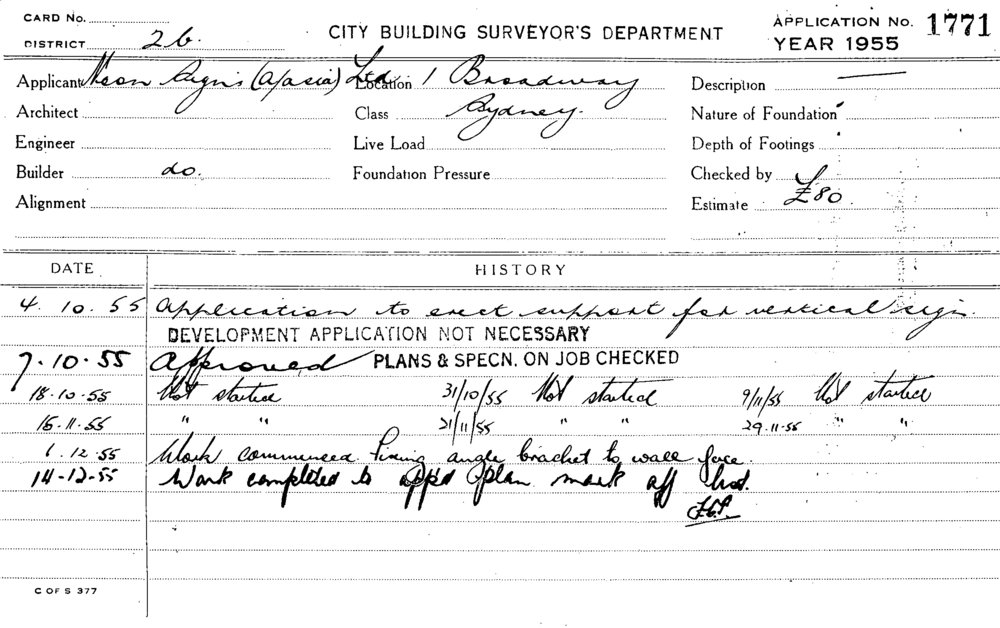 CARD No.
DISTRICT 2b.
CITY BUILDING SURVEYOR'S DEPARTMENT
APPLICATION No. 1771
YEAR 1955
Applicant Neon Signs (A/asia) Ltd Location 1 Broadway Description —
Architect Class Sydney. Nature of Foundation
Engineer Live Load Depth of Footings
Builder do. Foundation Pressure Checked by
Alignment Estimate £80
DATE HISTORY
4.10.55 Application to erect support for vertical sign.
DEVELOPMENT APPLICATION NOT NECESSARY
7.10.55 Approved PLANS & SPECN. ON JOB CHECKED
18.10.55 Not started 31/10/55 Not started 9/11/55 Not started
15.11.55 " " 21/11/55 " " 29.11.55 " "
6.12.55 Work commenced Fixing angle bracket to wall face.
14-12-55 Work completed to appd plan mark off
C OF S 377